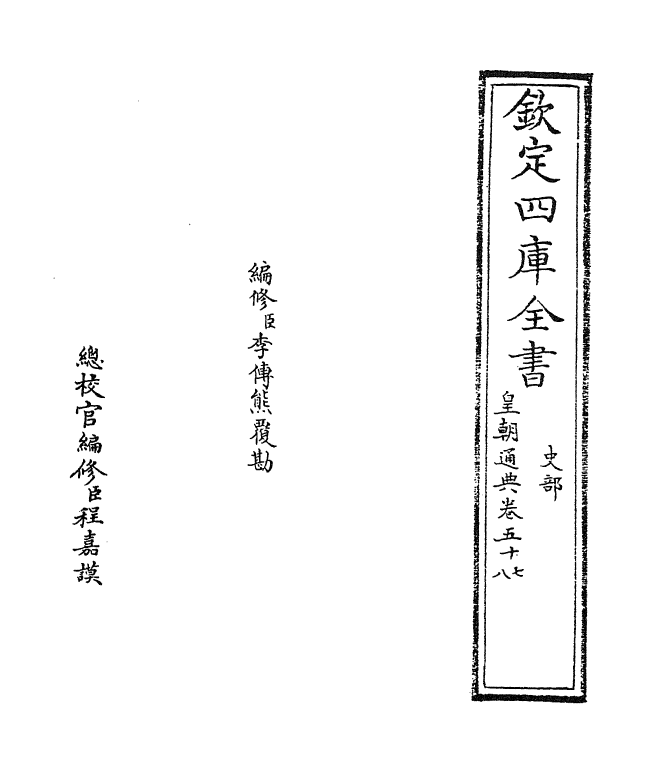 欽定四庫全書
史部
皇朝通典卷五十七八
編修臣李傳熊覆勘
總校官編修臣程嘉謨